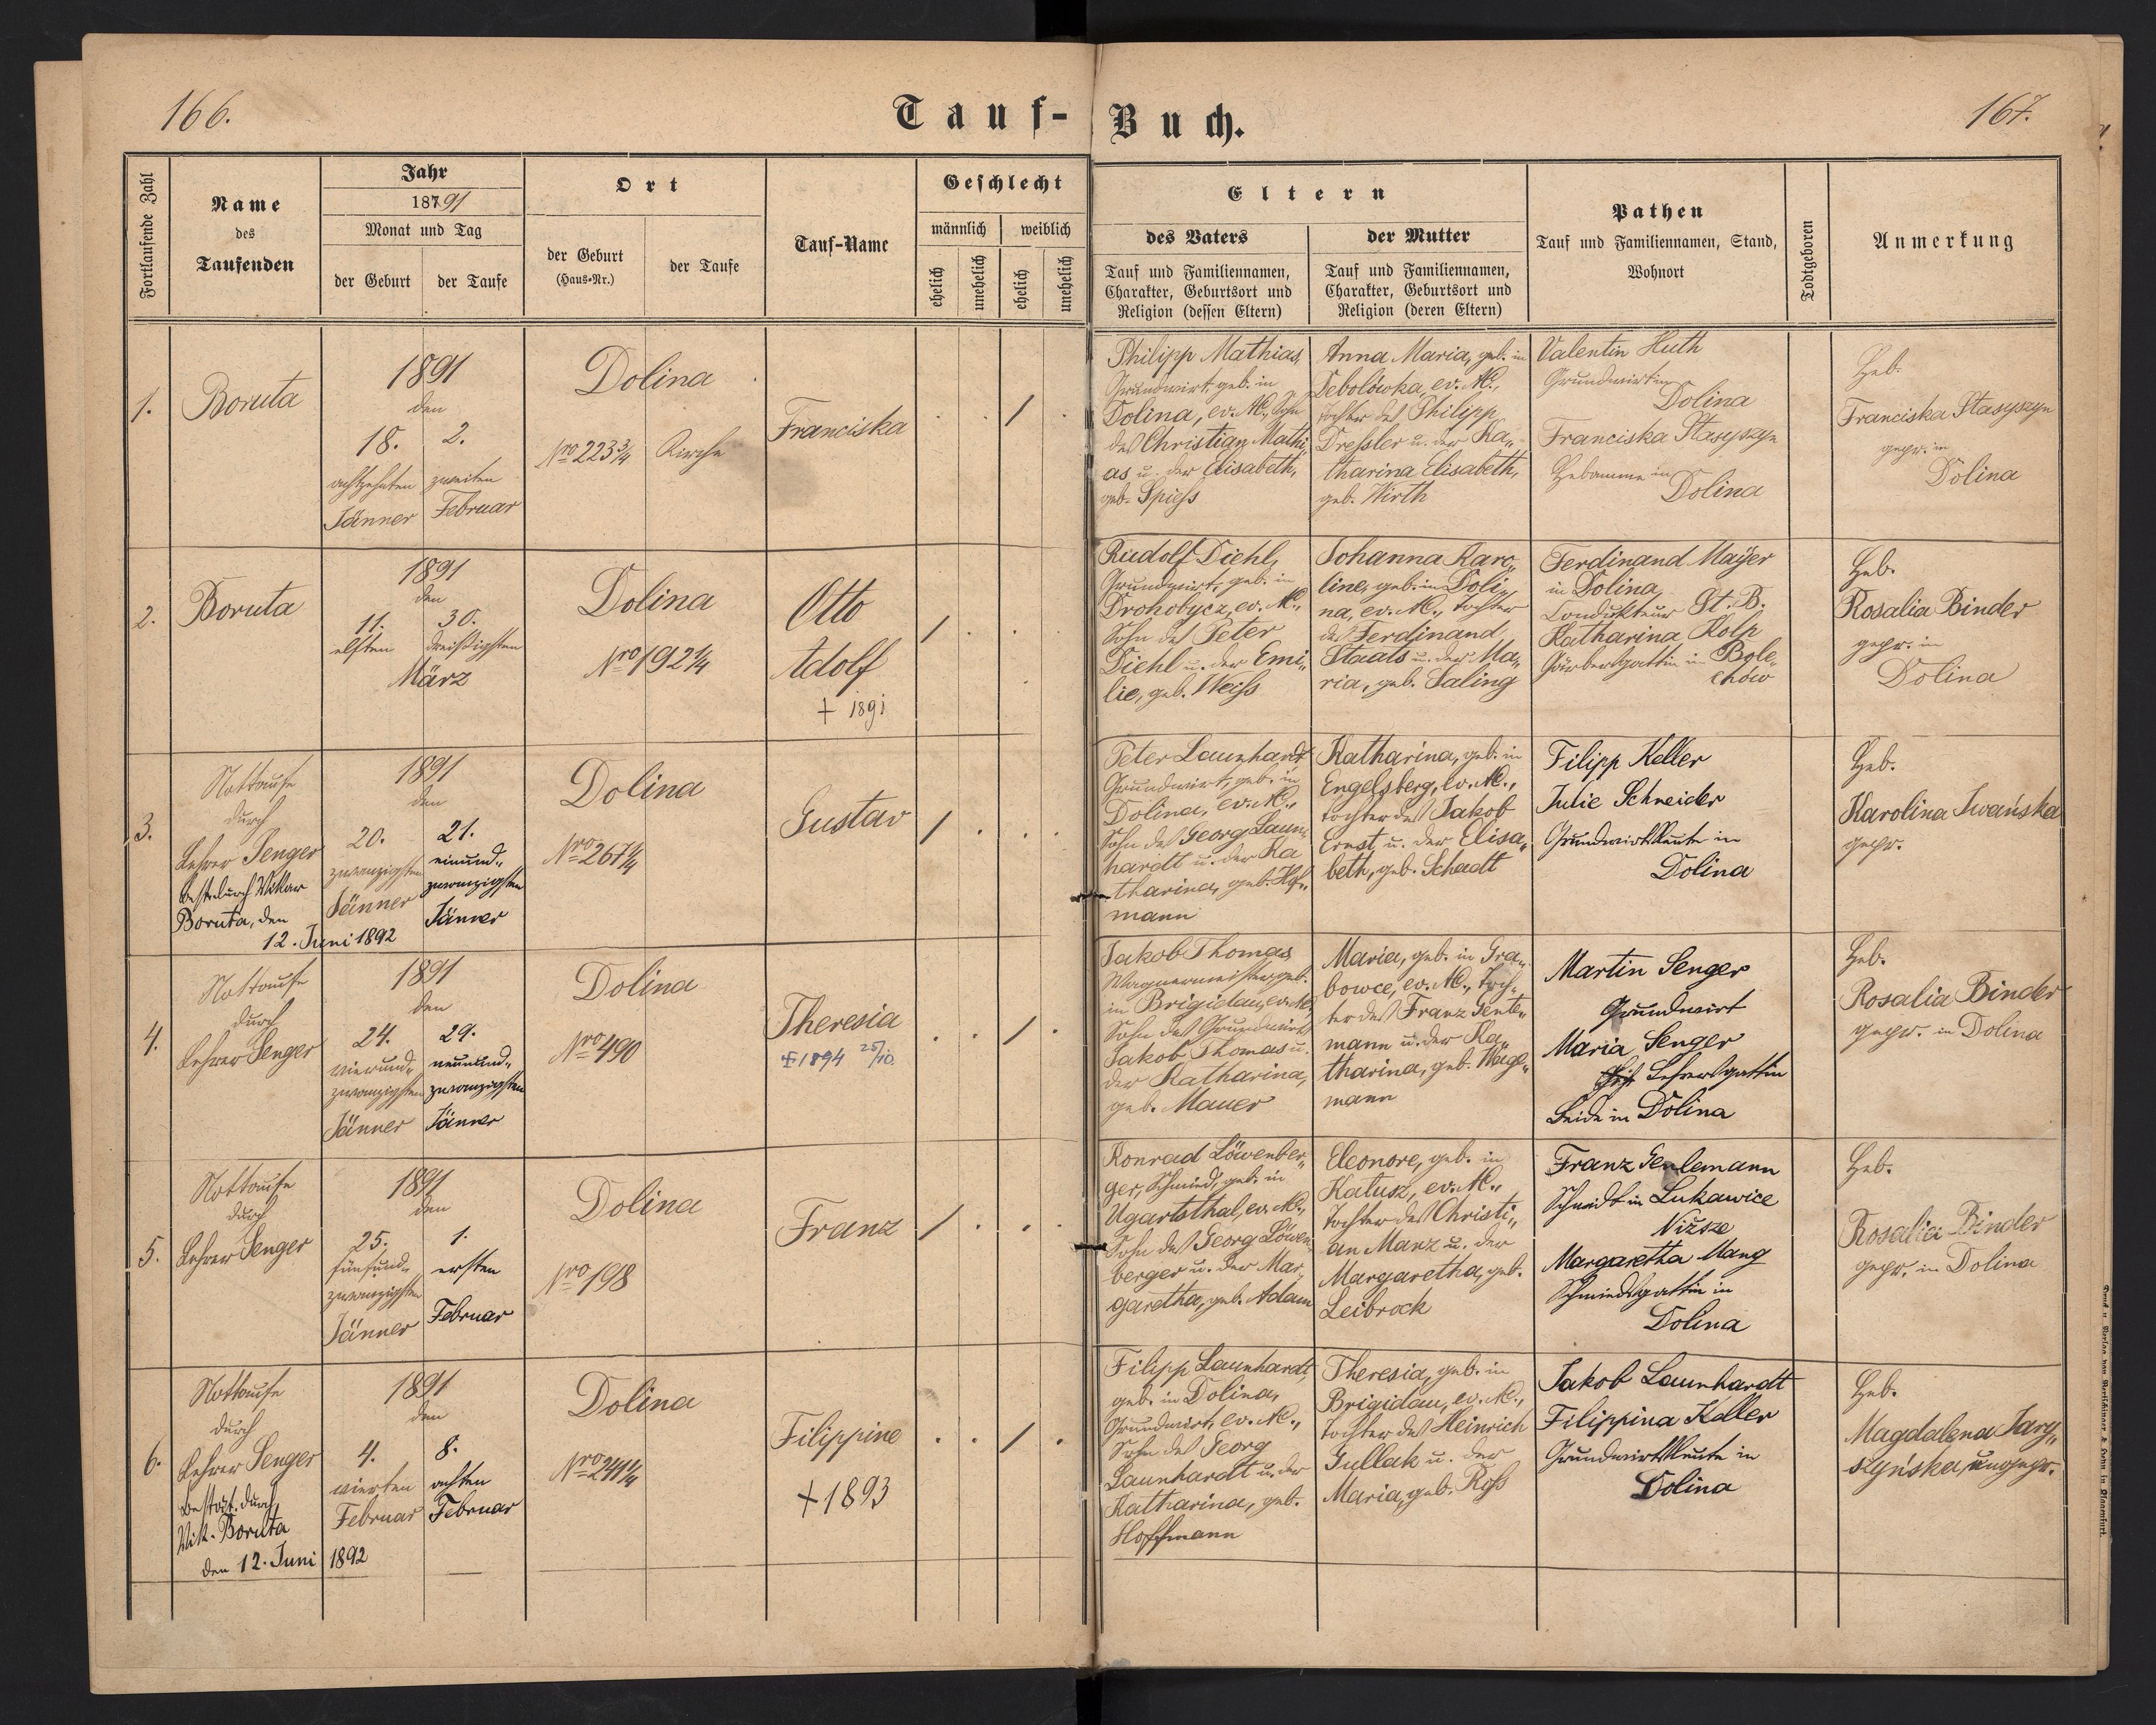 166.
Tauf-Buch.
167.
Fortlaufende Zahl
Name
des
Taufenden
Jahr
1891
Monat und Tag
der Geburt
der Taufe
Ort
der Geburt
(Haus-Nr.)
der Taufe
Tauf-Name
Geschlecht
männlich
weiblich
ehelich
unehelich
ehelich
unehelich
Eltern
des Vaters
Tauf und Familiennamen,
Charakter, Geburtsort und
Religion (dessen Eltern)
der Mutter
Tauf und Familiennamen,
Charakter, Geburtsort und
Religion (deren Eltern)
Pathen
Tauf und Familiennamen, Stand,
Wohnort
Todtgeboren
Anmerkung
1.
Boruta
1891
den
18.
achtzehnten
Jänner
2.
zweiten
Februar
Dolina
Nro 223 3/4
Kirche
Franciska
. . / .
Philipp Mathias,
Grundwirt, geb. in
Dolina, ev. AC., Sohn
des Christian Mathi„
as u. der Elisabeth,
geb. Spiess
Anna Maria, geb. in
Debolówka, ev. AC.,
Tochter des Philipp
Dressler u. der Ka„
tharina Elisabeth,
geb. Wirth
Valentin Huth
Grundwirt in
Dolina
Franciska Stasyszyn
Hebamme in
Dolina
Heb.
Franciska Stasyszyn
gepr. in
Dolina
2.
Boruta
1891
den
11.
elften
30.
dreißigsten
März
Dolina
Nro 192 1/4
Otto
Adolf
+ 1891
/ . . .
Rudolf Diehl,
Grundwirt, geb. in
Drohobycz, ev. AC.,
Sohn des Peter
Diehl u. der Emi„
lie, geb. Weiss
Johanna Karo„
line, geb. in Doli„
na, ev. AC., Tochter
des Ferdinand
Staats u. der Ma„
ria, geb. Saling
Ferdinand Mayer
in Dolina
Condukteur St. B.
Katharina Kolp
Gärbersgattin in Bole„
chów
Heb.
Rosalia Binder
gepr. in
Dolina
3.
Nottaufe
durch
Lehrer Senger
best. durch Vikar
Boruta, den
12. Juni 1892
1891
den
20.
zwanzigsten
Jänner
21.
einund„
zwanzigsten
Jänner
Dolina
Nro 267 1/4
Gustav
/ . . .
Peter Launhardt
Grundwirt, geb. in
Dolina, ev. AC.,
Sohn des Georg Laun„
hardt u. der Ka
tharina, geb. Hof„
mann
Katharina, geb. in
Engelsberg, ev. AC.,
Tochter des Jakob
Ernst u. der Elisa„
beth, geb. Schadt
Filipp Keller
Julie Schneider
Grundwirtsleute in
Dolina
Heb.
Karolina Iwańska
gepr.
4.
Nottaufe
durch
Lehrer Senger
1891
den
24.
vierund„
zwanzigsten
Jänner
29.
neunund„
zwanzigsten
Jänner
Dolina
Nro 490
Theresia
+ 1894 25/10.
. . / .
Jakob Thomas
Wagnermeister, geb.
in Brigidau, ev. AC,
Sohn des Grundwirts
Jakob Thomas u.
der Katharina,
geb. Mauer
Maria, geb. in Gra„
bowce, ev. AC., Toch„
ter des Franz Gente„
mann u. der Ka„
tharina, geb. Wage„
mann
Martin Senger
Grundwirt
Maria Senger
Lehrersgattin
Beide in Dolina
Heb.
Rosalia Binder
gepr. in Dolina
5.
Nottaufe
durch
Lehrer Senger
1891
den
25.
fünfund„
zwanzigsten
Jänner
1.
ersten
Februar
Dolina
Nro 198
Franz
/ . . .
Konrad Löwenber„
ger, Schmied, geb. in
Ugartsthal, ev. AC.,
Sohn des Georg Löwen„
berger u. der Mar„
garetha, geb. Adam
Eleonore, geb. in
Katusz, ev. AC.,
Tochter des Christi„
an Manz u. der
Margaretha, geb.
Leibrock
Franz Genlemann
Schmidt in Lukawice
Niższe
Margaretha Mang
Schmiedsgattin in
Dolina
Heb.
Rosalia Binder
gepr. in Dolina
6.
Nottaufe
durch
Lehrer Senger
bestät. durch
Vik. Boruta
den 12. Juni 1892
1891
den
4.
vierten
Februar
8.
achten
Februar
Dolina
Nro 241 1/4
Filippine
+ 1893
. . / .
Filipp Launhardt,
geb. in Dolina,
Grundwirt, ev. AC.,
Sohn des Georg
Launhardt u. der
Katharina, geb.
Hoffmann
Theresia, geb. in
Brigidau, ev. AC.,
Tochter des Heinrich
Gullak u. der
Maria, geb. Ross
Jakob Launhardt
Filippina Keller
Grundwirtsleute in
Dolina
Heb.
Magdalena Jary„
szyńska, ungepr.